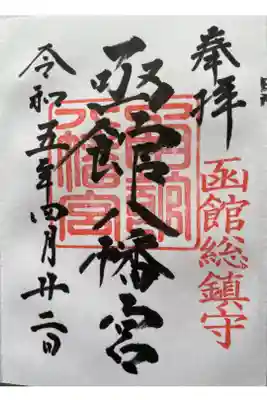 奉拝
函館総鎮守
函館八幡宮
令和五年四月廿二日